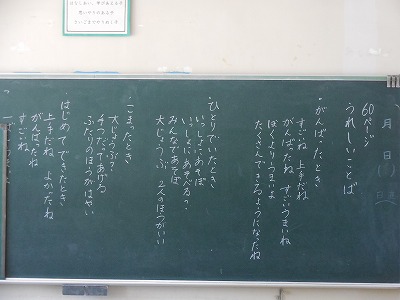 月 日( )
60ページ
うれしいことば
・がんばったとき
すごいね 上手だね
がんばたね すごいうまいね
ぼくよりうまいよ
たくさんできるようになったね
・ひとりでいたとき
いっしょにあそぼ
いっしょにあそべる?
みんなであそぼ
大じょうぶ 2人のほうがいい
・こまったとき
大じょうぶ?
手つだってあげる
ふたりのほうがはやい
・はじめてできたとき
上手だね よかったね
がんばったね
すごいね